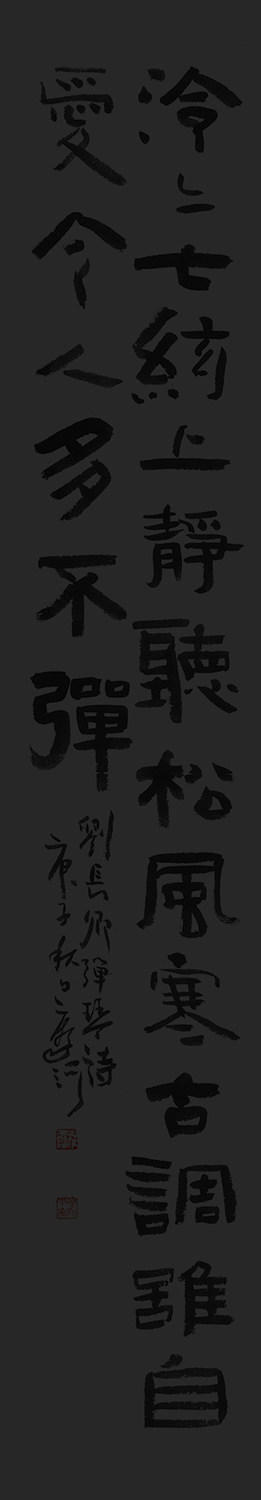 泠〻七絃上靜聽松風寒古調雖自
愛今人多不彈
劉長卿彈琴詩
庚子秋日